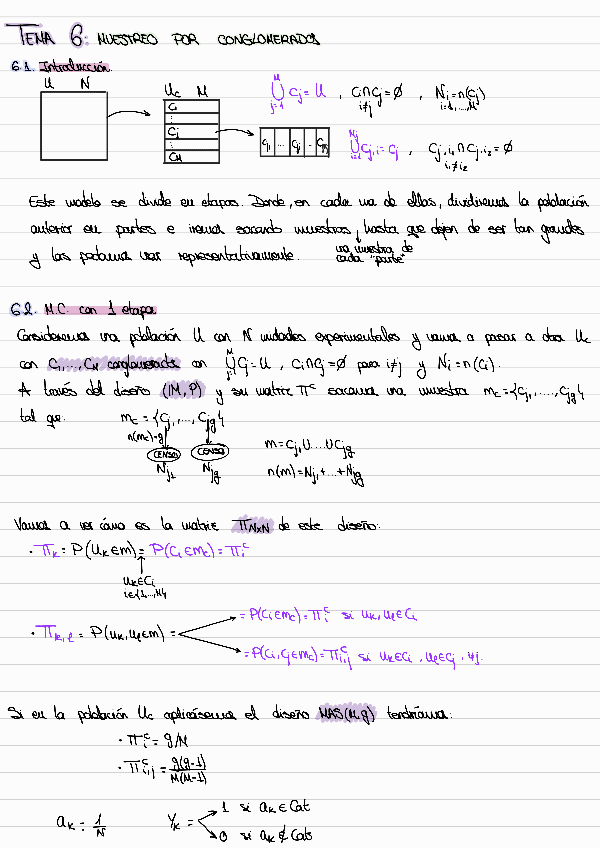 TEMA 6: MUESTREO POR CONGLOMERADOS
6.1. Introducción.
U N
Uc M
C1
⋮
Cj
⋮
CM
Cj1 ... Cji ... CjMj
⋃_{j=1}^{M} Cj = U , Ci∩Cj = ∅ i≠j , Ni = n(Cj) i=1,...,M
⋃_{i=1}^{Mj} Cj,i = Cj , Cj,i1 ∩ Cj,i2 = ∅ i1≠i2
Este modelo se divide en etapas. Donde, en cada una de ellas, dividiremos la población
anterior en partes e iremos sacando muestras, hasta que dejen de ser tan grandes
una muestra de cada "parte"
y las podamos usar representativamente.
6.2. M.C. con 1 etapa
Consideremos una población U con N unidades experimentales y vamos a pasar a otra Uc
con C1,...,CM conglomerados con ⋃_{j=1}^{M} Cj = U , Ci∩Cj = ∅ para i≠j y Ni = n(Ci).
A través del diseño (M,P) y su matriz Π^c sacamos una muestra mc = {Cj1,...,Cjg}
tal que: mc = {Cj1,...,Cjg}
n(mc)=g
CENSO CENSO
Nj1 Njg
m = Cj1 U...U Cjg
n(m) = Nj1 + ... + Njg
Vamos a ver cómo es la matriz Π_{NxN} de este diseño:
· Πk = P(Uk∈m) = P(Ci∈mc) = Πi^c
Uk∈Ci
i∈{1,...,M}
· Πk,l = P(uk,ul∈m) =
= P(Ci∈mc) = Πi^c si uk,ul∈Ci
= P(Ci,Cj∈mc) = Πi,j^c si uk∈Ci, ul∈Cj, i≠j.
Si en la población Uc aplicásemos el diseño MAS(M,g) tendríamos:
· Πi^c = g/M
· Πi,j^c = g(g-1)/M(M-1)
ak = 1/N
Yk =
1 si ak ∈ Cat
0 si ak ∉ Cats